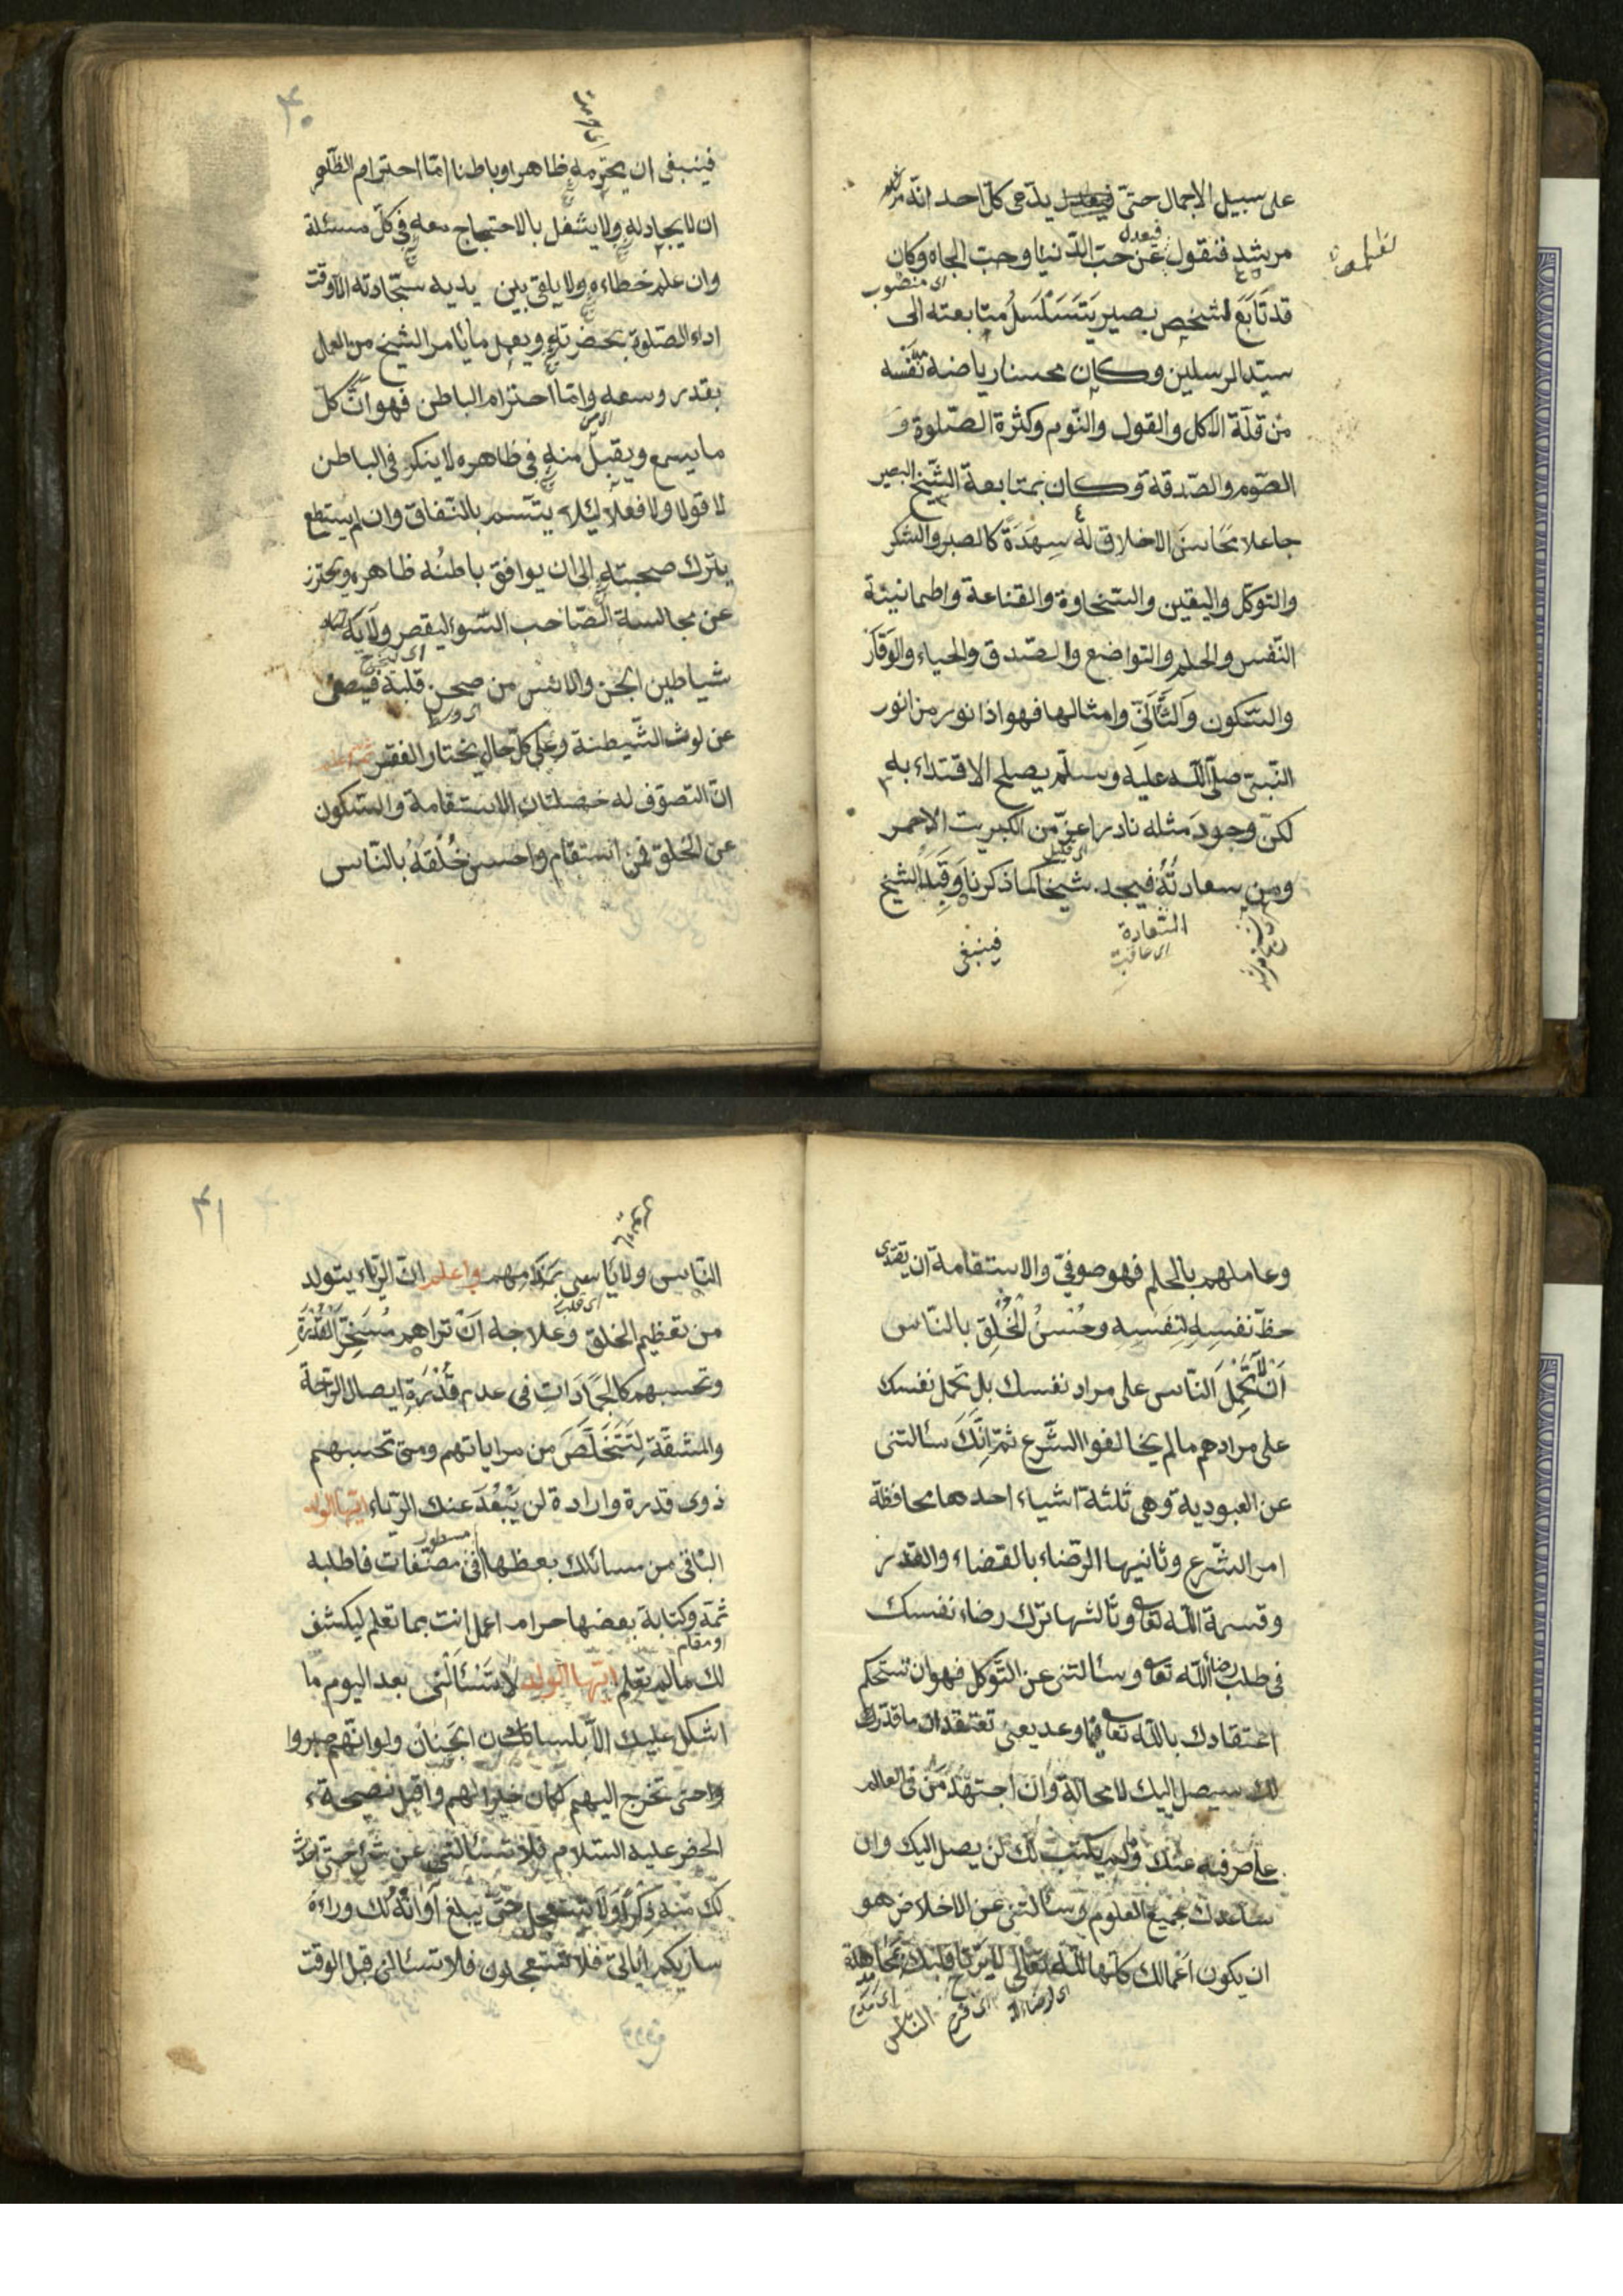 على سبيل الاجمال حتى يدعى كل احد انه مرشد
فيعدل
مرشد فنقول عن حب الدنيا وحب الجاه وكان
اى منصوب
قد تابع لشخص بصير يتسلسل متابعته الى
سيد المرسلين وكان محسنا رياضة نفسه
من قلة الاكل والقول والنوم وكثرة الصلوة و
الصوم والصدقة وكان بمتابعة الشيخ البصير
جاعلا محاسن الاخلاق له سهدة كالصبر والشكر
والتوكل واليقين والسخاوة والقناعة واطمانينة
النفس والحلم والتواضع والصدق والحياء والوقار
والسكون والتأنى وامثالها فهو اذا نور من انور
النبى صلى الله عليه وسلم يصلح الاقتداء به
لكن وجود مثله نادر اعز من الكبريت الاحمر
اى قليل
ومن سعادته فيجد شيخا كما ذكرنا وقبله الشيخ
السعادة
اى عاقبت
فينبغى
٤٠
فينبغى ان يحترمه ظاهرا وباطنا اما احترام الظاهر
ان لا يجادله ولا يشغل بالاحتجاج معه فى كل مسئلة
وان علم خطاءه ولا يلقى بين يديه سجادته الا وقت
اداء الصلوة بحضرته ويعمل ما يأمر الشيخ من العمل
بقدر وسعه واما احترام الباطن فهو ان كل
ما يسمع ويقبل منه فى ظاهره لا ينكر فى الباطن
لا قولا ولا فعلا لئلا يتسم بالنفاق وان لم يستطع
يترك صحبته الى ان يوافق باطنه ظاهره ويحترز
عن مجالسة الصاحب السوء ليقصر ولاية
شياطين الجن والانس من صحن قلبه فيصفى
عن لوث الشيطنة وعلى كل حال يختار الفقر
ان التصوف له خصلتان الاستقامة والسكون
عن الخلق فمن استقام واحسن خلقه بالناس
وعاملهم بالحلم فهو صوفى والاستقامة ان يفدى
حظ نفسه لنفسه وحسن الخلق بالناس
ان لا تحمل الناس على مراد نفسك بل تحمل نفسك
على مرادهم ما لم يخالفوا الشرع ثم انك سألتنى
عن العبودية وهى ثلثة اشياء احدها محافظة
امر الشرع وثانيها الرضاء بالقضاء والقدر
وقسمة الله تعالى وثالثها ترك رضاء نفسك
فى طلب رضاء الله تعالى وسئالتنى عن التوكل فهو ان تستحكم
اعتقادك بالله تعالى فيما وعد يعنى تعتقد ان ما قدر
لك سيصل اليك لا محالة وان اجتهد من فى العالم
على صرفه عنك وما لم يكتب لك لن يصل اليك وان
ساعدك جميع العلوم وسئالتنى عن الاخلاص هو
ان يكون اعمالك كلها لله تعالى لا يرتاح قلبك بمحامدة
اى لرضاء الله
اى فرح
الناس
اى مدح
٤١
الناس ولا يأسى بمذمهم واعلم ان الرياء يتولد
من تعظيم الخلق وعلاجه ان تراهم مسخر القدرة
وتحسبهم كالجمادات فى عدم قدرة ايصال الراحة
والمشقة لتتخلص من مراياتهم ومتى تحسبهم
ذوى قدرة وارادة لن يبعد عنك الرياء ايها الولد
مسطور
الباقى من مسائلك بعضها فى مصنفات فاطلبه
ثمة وكتابة بعضها حرام اعمل انت بما تعلم ليكشف
لك ما لم تعلم ايها الولد لا تسئالنى بعد اليوم ما
اشكل عليك الا بلسان الجنان ولو انهم صبروا
حتى تخرج اليهم لكان خيرا لهم واقبل نصيحة
الخضر عليه السلام فلا تسئالنى عن شئ حتى احدث
لك منه ذكرا ولا تستعجل حتى يبلغ اوانه لك وراءه
ساريكم اياتى فلا تستعجلون فلا تسئالنى قبل الوقت